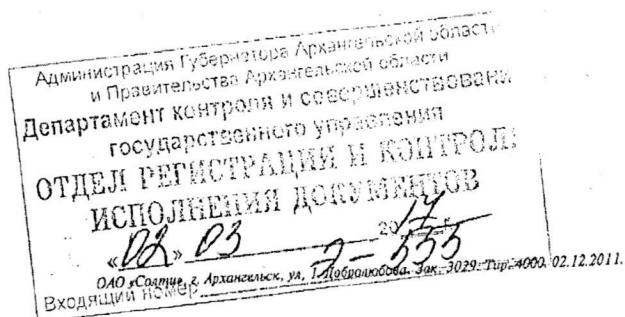 Администрация Губернатора Архангельской области
и Правительства Архангельской области
Департамент контроля и совершенствовани
государственного управления
ОТДЕЛ РЕГИСТРАЦИИ И КОНТРОЛ
ИСПОЛНЕНИЯ ДОКУМЕНТОВ
«02» 03 2017 г.
2-533
ОАО «Солти», г. Архангельск, ул. 1, Добролюбова. Зак. 3029. Тир. 4000. 02.12.2011.
Входящий номер